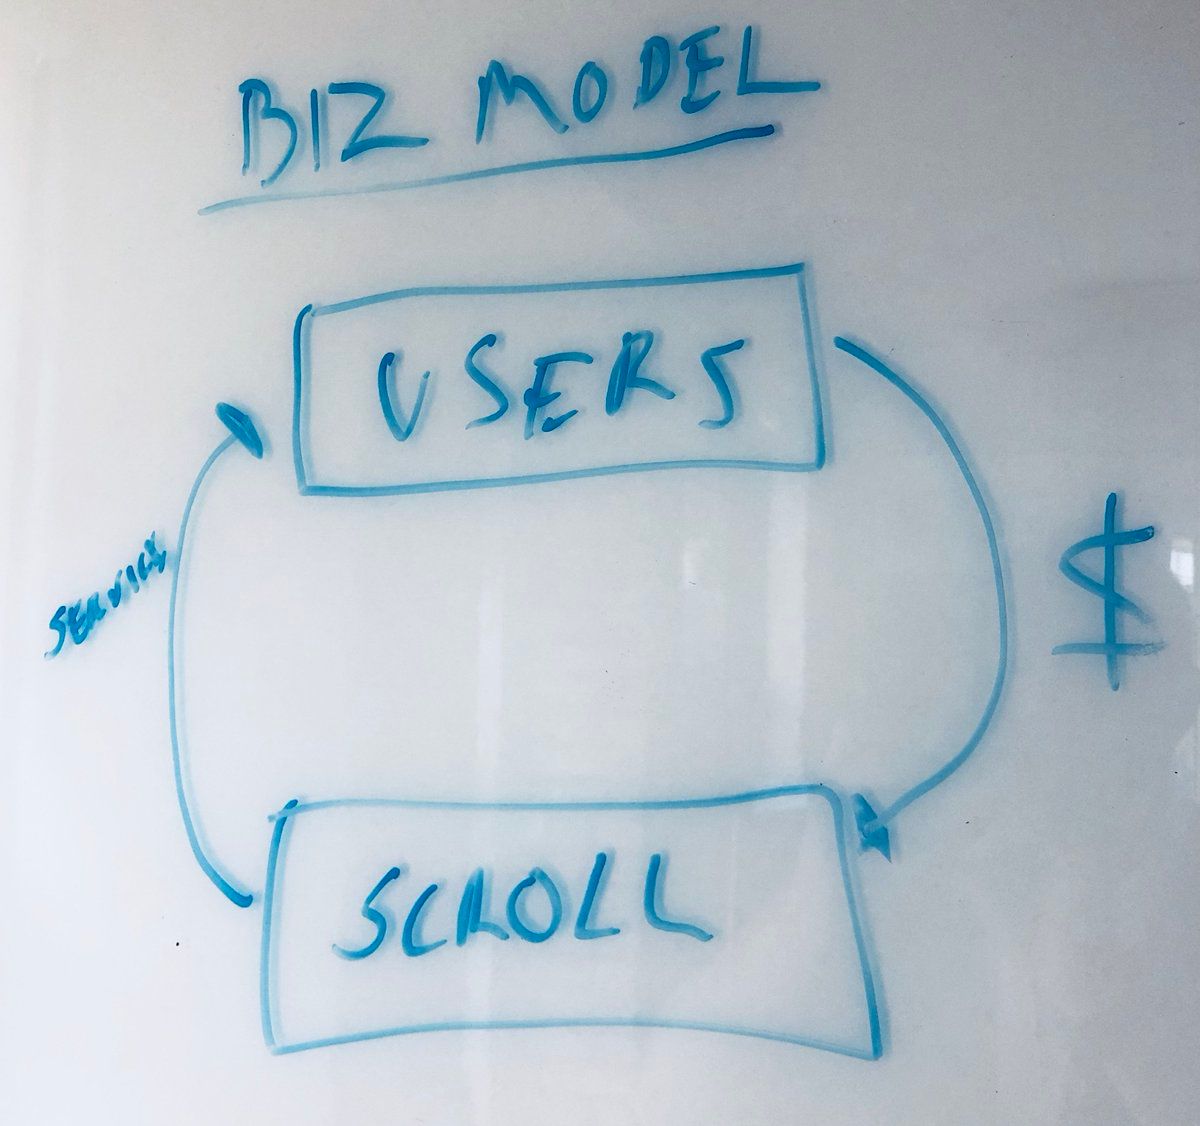 BIZ MODEL
USERS
SERVICE
$
SCROLL